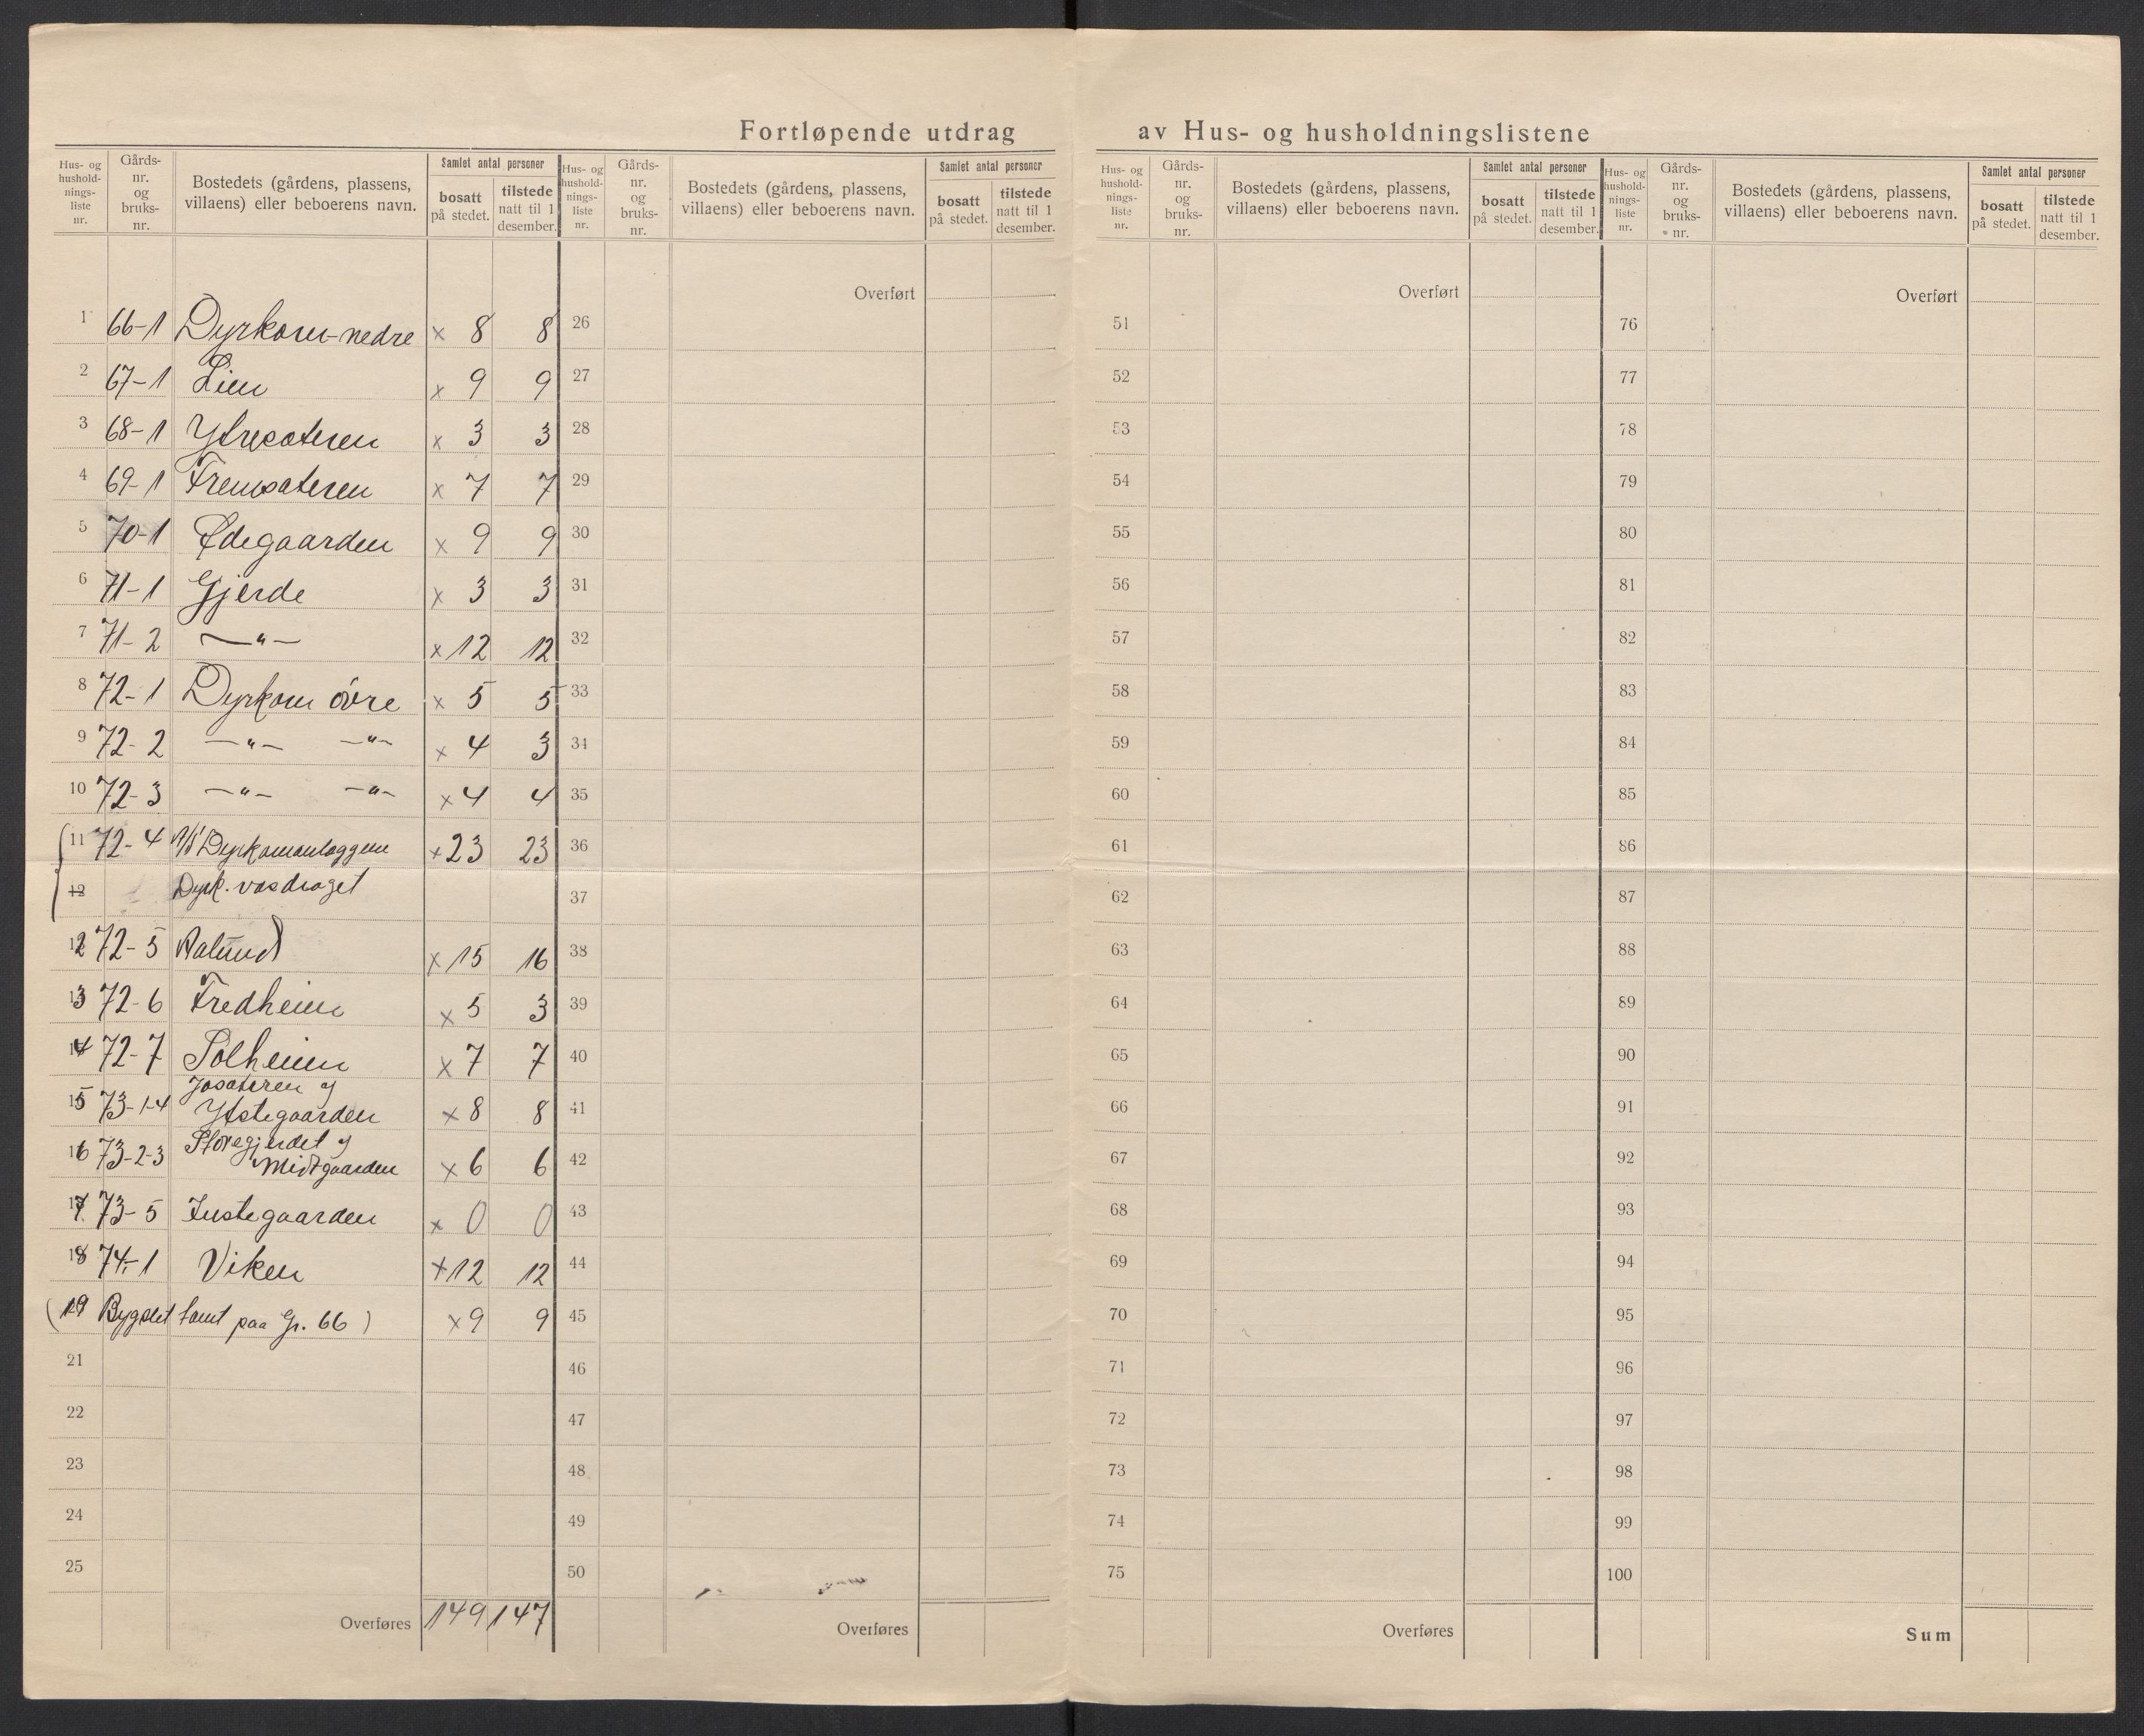 Fortløpende utdrag av Hus- og husholdningslistene
Hus- og hushold-nings-liste nr. Gårds-nr. og bruks-nr. Bostedets (gårdens, plassens, villaens) eller beboerens navn. Samlet antal personer bosatt på stedet. tilstede natt til 1 desember.
Hus- og hushold-nings-liste nr. Gårds-nr. og bruks-nr. Bostedets (gårdens, plassens, villaens) eller beboerens navn. Samlet antal personer bosatt på stedet. tilstede natt til 1 desember.
Hus- og hushold-nings-liste nr. Gårds-nr. og bruks-nr. Bostedets (gårdens, plassens, villaens) eller beboerens navn. Samlet antal personer bosatt på stedet. tilstede natt til 1 desember.
Hus- og hushold-nings-liste nr. Gårds-nr. og bruks-nr. Bostedets (gårdens, plassens, villaens) eller beboerens navn. Samlet antal personer bosatt på stedet. tilstede natt til 1 desember.
Overført Overført Overført
1 66-1 Dyrkorn-nedre x 8 8 26 51 76
2 67-1 Lien x 9 9 27 52 77
3 68-1 Ytresæteren x 3 3 28 53 78
4 69-1 Fremsæteren x 7 7 29 54 79
5 70-1 Ødegaarden x 9 9 30 55 80
6 71-1 Gjerde x 3 3 31 56 81
7 71-2 —"— x 12 12 32 57 82
8 72-1 Dyrkorn øvre x 5 5 33 58 83
9 72-2 —"— —"— x 4 3 34 59 84
10 72-3 —"— —"— x 4 4 35 60 85
11 72-4 A/S Dyrkornanlæggene x 23 23 36 61 86
12 Dyrk. vasdraget 37 62 87
12 72-5 Aalund x 15 16 38 63 88
13 72-6 Fredheim x 5 3 39 64 89
14 72-7 Solheim x 7 7 40 65 90
15 73-1-4 Josæteren og
Ystegaarden x 8 8 41 66 91
16 73-2-3 Storegjerdet og
Midtgaarden x 6 6 42 67 92
17 73-5 Instegaarden x 0 0 43 68 93
18 74-1 Viken x 12 12 44 69 94
(19 Bygslet tomt paa Gr. 66) x 9 9 45 70 95
21 46 71 96
22 47 72 97
23 48 73 98
24 49 74 99
25 50 75 100
Overføres 149 147 Overføres Overføres Sum